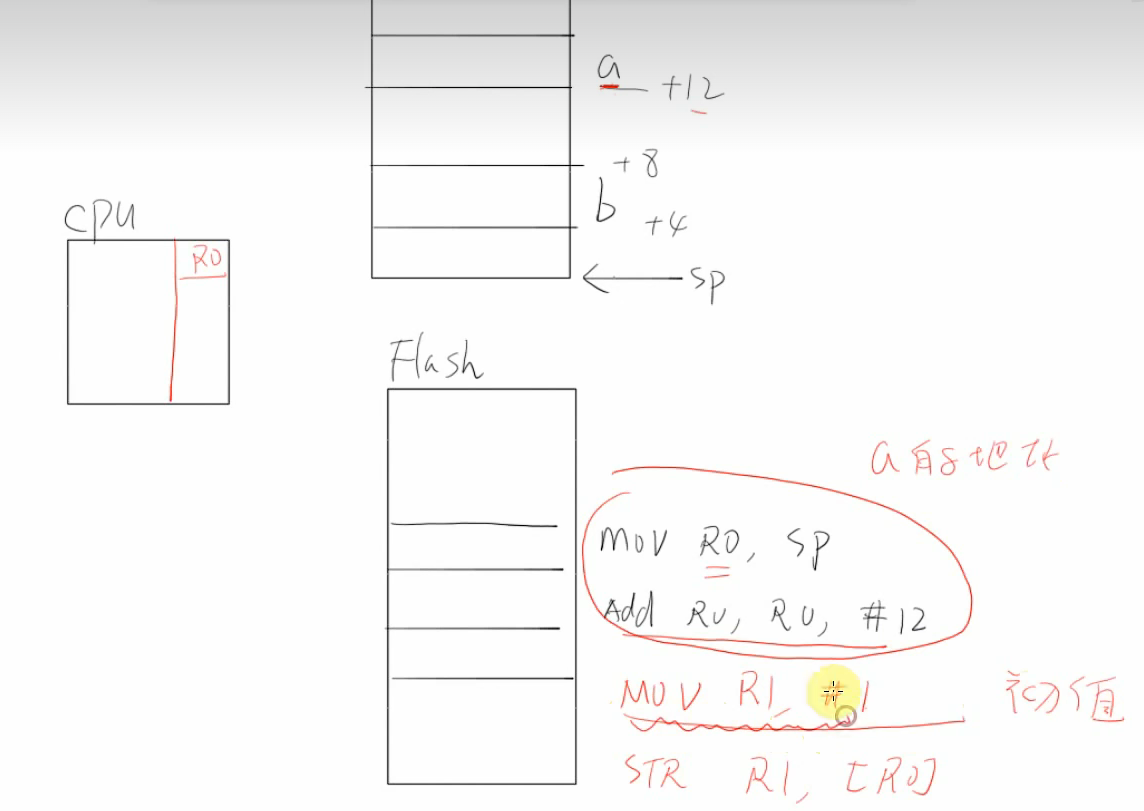 a +12
+8
b
+4
CPU
R0
← SP
Flash
a的地址
MOV R0, SP
Add R0, R0, #12
MOV R1, #1
初值
STR R1, [R0]